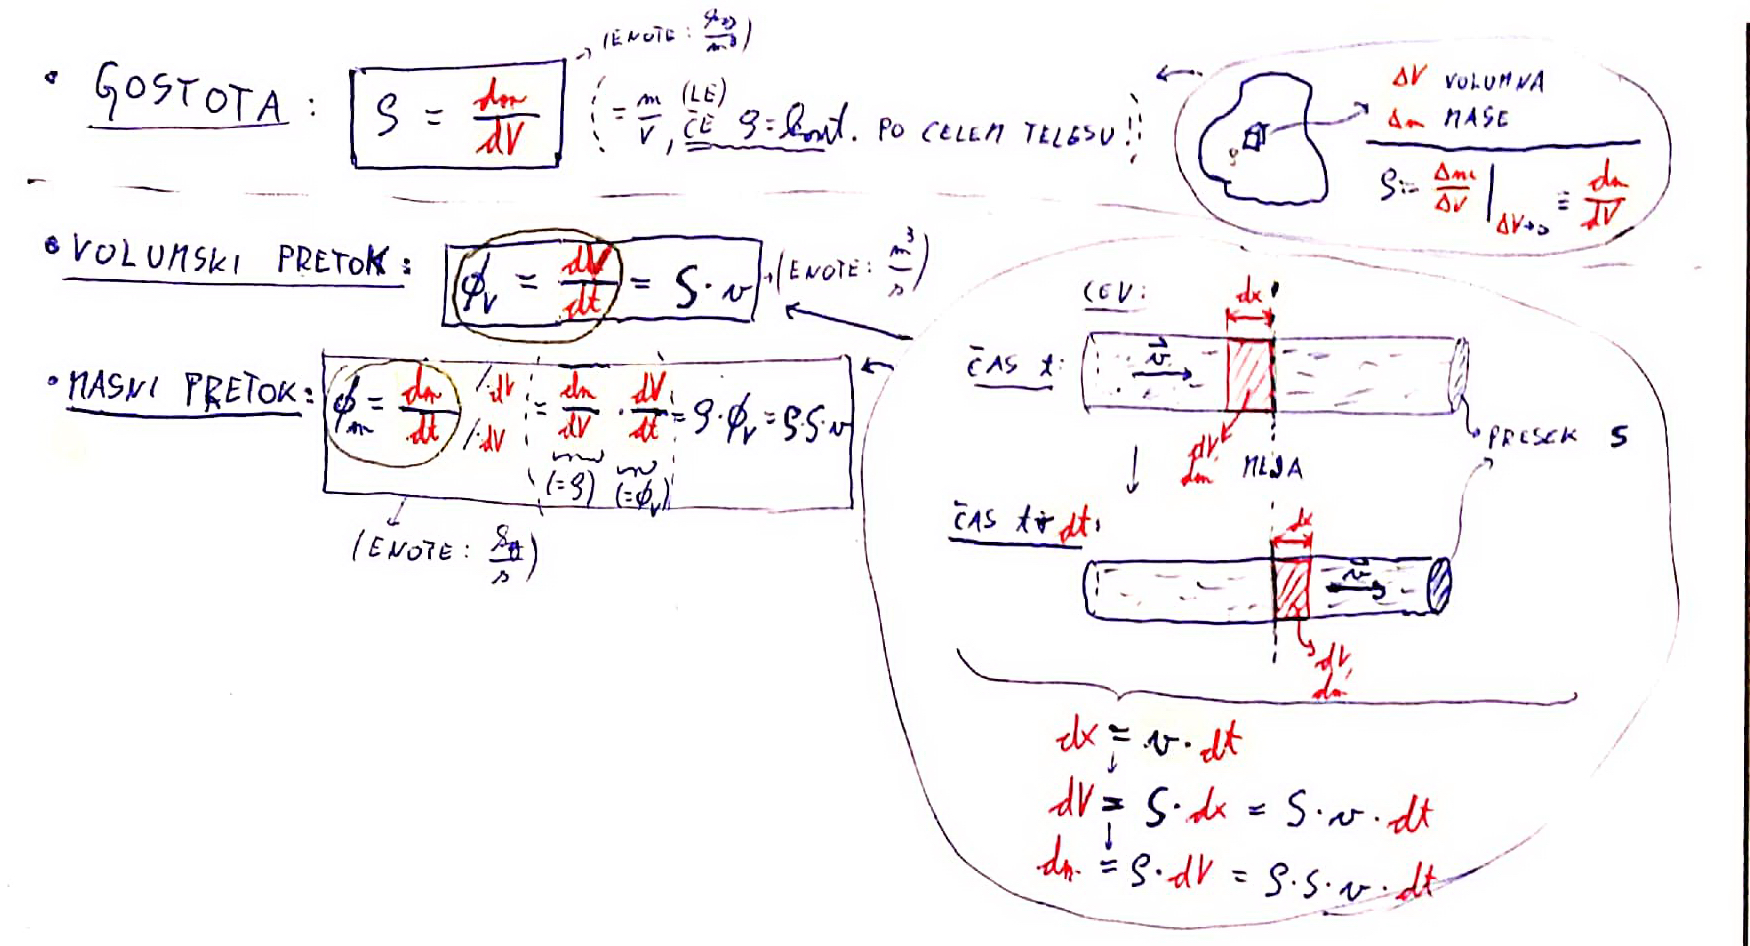 • GOSTOTA: ρ = dm/dV (ENOTE: kg/m³)
(= m/V, (LE) ČE ρ = konst. PO CELEM TELESU!)
ΔV VOLUMNA
Δm MASE
ρ := Δm/ΔV |ΔV→0 ≡ dm/dV
• VOLUMSKI PRETOK: ϕ_V = dV/dt = S·v (ENOTE: m³/s)
• MASNI PRETOK: ϕ_m = dm/dt /·dV /·dV = dm/dV · dV/dt = ρ·ϕ_V = ρ·S·v
(=ρ) (=ϕ_V)
(ENOTE: kg/s)
CEV:
dx
ČAS t:
v
dV, dm
MEJA
PRESEK S
ČAS t+dt:
dx
v
dV, dm
dx = v·dt
dV = S·dx = S·v·dt
dm = ρ·dV = ρ·S·v·dt